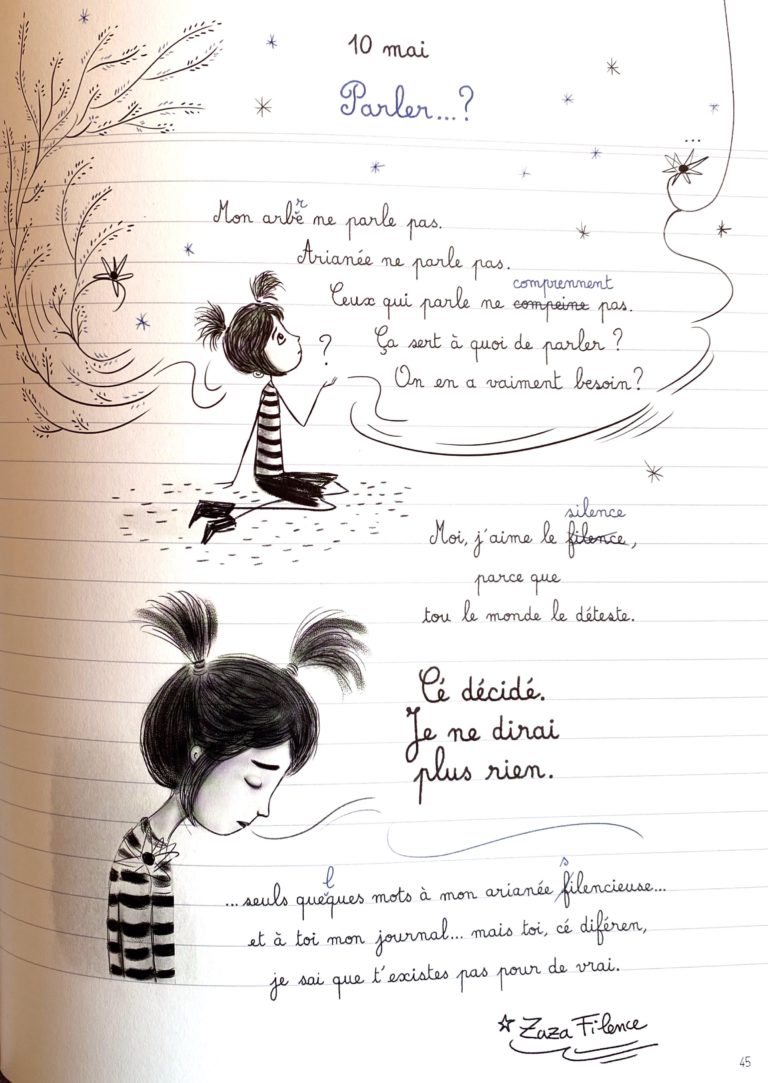 10 mai
Parler...?
...
r
Mon arbe ne parle pas.
Arianée ne parle pas.
comprennent
Ceux qui parle ne compeine pas.
?
Ça sert à quoi de parler ?
On en a vaiment besoin?
silence
Moi, j'aime le filence,
parce que
tou le monde le déteste.
Cé décidé.
Je ne dirai
plus rien.
l s
...seuls queques mots à mon arianée filencieuse...
et à toi mon journal... mais toi, cé diféren,
je sai que t'existes pas pour de vrai.
☆ Zaza Filence
45